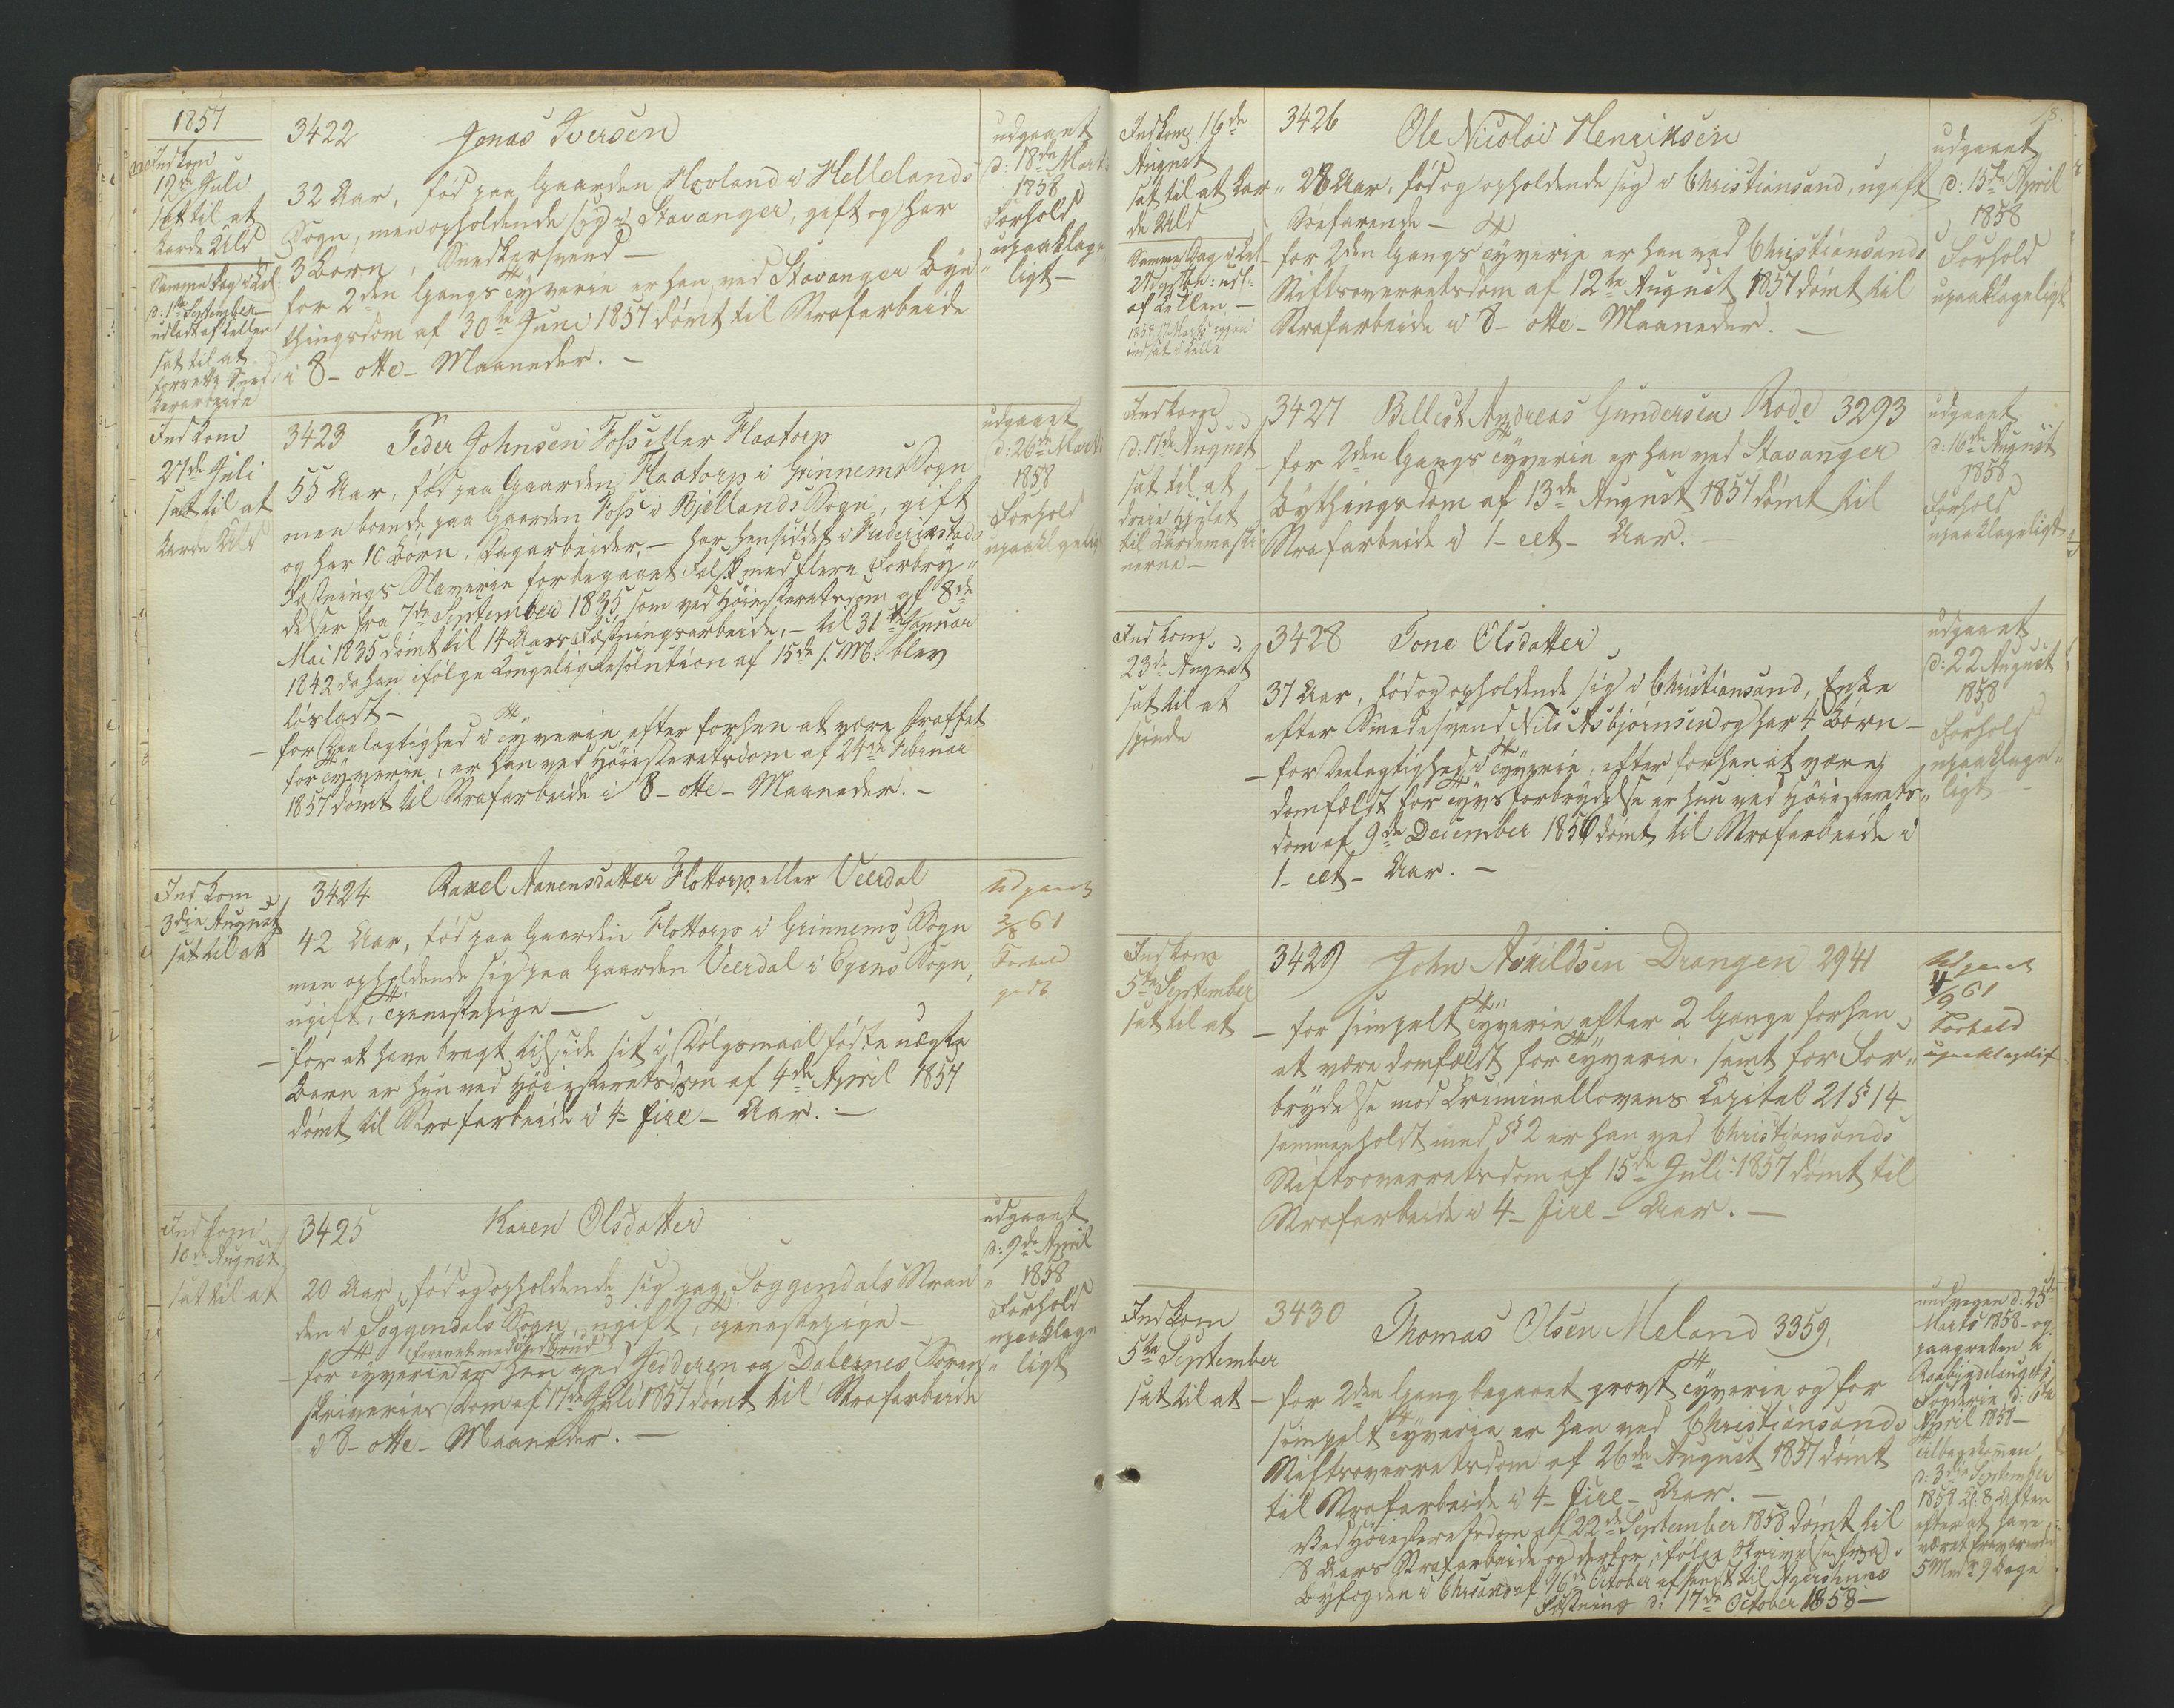 1857
Indkom
19de Juli
sat til at
karde Uld
Samme Dag i Cel
d: 1ste September
udladt af Cellen
sat til at
forrette Sned
kerarbeide
3422 Jonas Iversen
32 Aar, fød paa Gaarden Hovland i Hellelands
Sogn, men opholdende sig i Stavanger, gift og har
3 Børn, Snedkersvend —
for 2den Gangs Tyverie er han ved Stavanger Bye
thingsdom af 30te Juni 1857 dømt til Strafarbeide
i 8 - otte - Maaneder. —
udgaaet
d: 18de Marts
1858
Forhold
upaaklage
ligt —
Indkom
27de Juli
sat til at
karde Uld
3423 Peder Johnsen Foss eller Flaatorp
55 Aar, fød paa Gaarden Flaatorp i Grinnems Sogn
men boende paa Gaarden Foss i Bjellands Sogn, gift
og har 10 Børn, Dagarbeider, — har hensiddet i Frederikstads
Fæstnings Slaverie for begaaet Falsk med flere Forbry„
delser fra 7de September 1835 som ved Høiesteretsdom af 8de
Mai 1835 dømt til 14 Aars Fæstningsarbeide, — til 31te Januar
1842 da han ifølge Kongelig Resolution af 15de s. M. blev
løsladt —
— for Deelagtighed i Tyverie, efter forhen at være straffet
for Tyverie, er han ved Høiesteretsdom af 24de Februar
1857 dømt til Strafarbeide i 8 - otte - Maaneder. —
udgaaet
d: 26de Marts
1858
Forhold
upaaklagelig
Indkom
3die August
sat til at
3424 Rakel Aanensdatter Flottorp eller Veerdal
42 Aar, fød paa Gaarden Flottorp i Grinnems Sogn
men opholdende sig paa Gaarden Veerdal i Egens Sogn,
ugift, Tjenestepige —
— for at have bragt tilside sit i Dølgsmaal fødte uægte
Barn er hun ved Høiesteretsdom af 4de April 1857
dømt til Strafarbeide i 4 - fire - Aar. —
Udgaaet
2/8 61
Forhold
godt
Indkom
10de August
sat til at
3425 Karen Olsdatter
20 Aar, fød og opholdende sig paa Soggendals Stran
den i Soggendals Sogn, ugift, Tjenestepige —
forenet med Indbrud
— for Tyverie er hun ved Jedderen og Dalernes Soren
skriveries Dom af 17de Juli 1857 dømt til Strafarbeide
i 8 - otte - Maaneder. —
udgaaet
d: 9de April
1858
Forhold
upaaklage
ligt
18.
Indkom 16de
August
sat til at kar„
de Uld
Samme Dag i Cel
27 August: udl:
af Cellen —
1858 17 Marts igjen
indsat i Celle
3426 Ole Nicolai Henriksen
28 Aar, fød og opholdende sig i Christiansand, ugift
Søefarende —
— for 2den Gangs Tyverie er han ved Christiansands
Stiftsoverretsdom af 12te August 1857 dømt til
Strafarbeide i 8 - otte - Maaneder. —
udgaaet
d: 15de April
1858
Forhold
upaaklageligt
Indkom
d: 17de August
sat til at
dreie Hjulet
til Kardemaski
nerne —
3427 Bellest Andreas Gundersen Rode 3293
— for 2den Gangs Tyverie er han ved Stavanger
Bythingsdom af 13de August 1857 dømt til
Strafarbeide i 1 - eet - Aar. —
udgaaet
d: 16de August
1858
Forhold
upaaklageligt
Indkom
23de August
sat til at
spinde
3428 Tone Olsdatter
37 Aar, fød og opholdende sig i Christiansand, Enke
efter Smedesvend Nils Asbjørnsen og har 4 Børn —
— for Deelagtighed i Tyverie, efter forhen at være
domfældt for Tyvsforbrydelse er hun ved Høiesterets„
dom af 9de December 1856 dømt til Strafarbeide i
1 - eet - Aar. —
udgaaet
d: 22 August
1858
Forhold
upaaklage„
ligt —
Indkom
5te September
sat til at
3429 John Askildsen Drangen 2941
— for simpelt Tyverie efter 2 Gange forhen
at være domfældt for Tyverie, samt for For„
brydelse mod Criminallovens Kapitel 21 § 14
sammenholdt med § 2 er han ved Christiansands
Stiftsoverretsdom af 15de Juli 1857 dømt til
Strafarbeide i 4 - fire - Aar. —
Udgaaet
4/9 61
Forhold
upaaklageligt
Indkom
5te September
sat til at
3430 Thomas Olsen Meland 3359,
— for 2den Gang begaaet grovt Tyverie og for
simpelt Tyverie er han ved Christiansands
Stiftsoverretsdom af 26de August 1857 dømt
til Strafarbeide i 4 - fire - Aar. —
Ved Høiesteretsdom af 22de September 1858 dømt til
8 Aars Strafarbeide og derfor, ifølge Skrivelse fra
Byfogden i Chrsand af 16de October afsendt til Agershuus
Fæstning d: 17de October 1858 —
undvegen d: 25de
Marts 1858 — og
paagreben i
Raabygdelaugets
Fogderie d: 6te
April 1858 —
tilbagekommen
d: 3die September
1858 Kl: 8 Aften
efter at have
været fraværende
5 Mdr 9 Dage